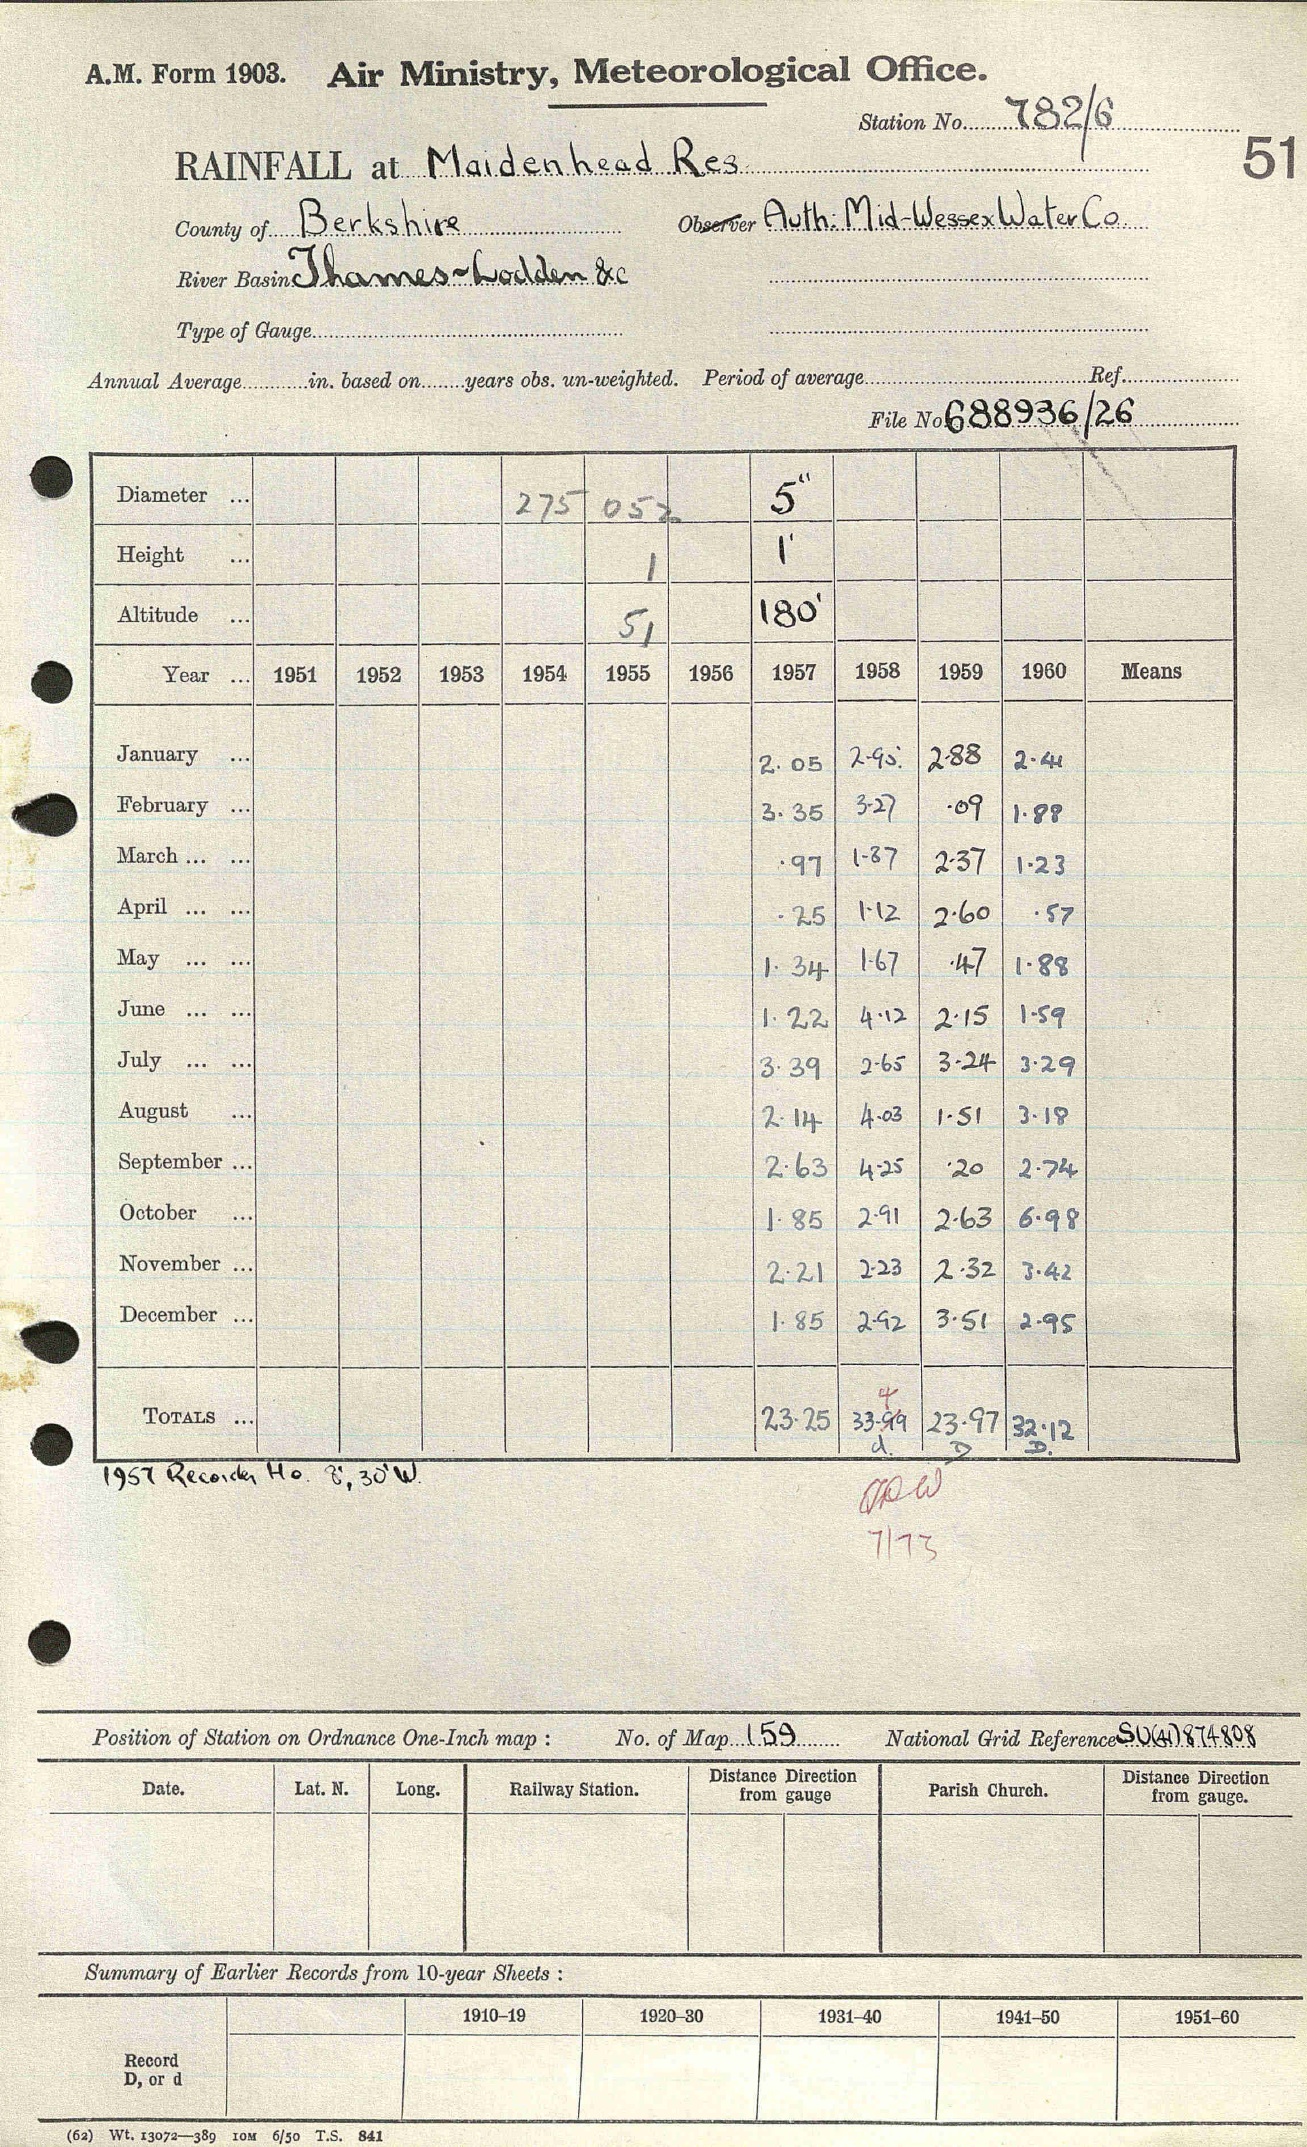 A.M. Form 1903. Air Ministry, Meteorological Office.
Station No. 782/6
51
RAINFALL at Maidenhead Res.
County of Berkshire Observer Auth: Mid-Wessex Water Co.
River Basin Thames~Lodden &c
Type of Gauge
Annual Average in. based on years obs. un-weighted. Period of average Ref.
File No 688936/26
Diameter ... 275 052 5"
Height ... 1 1'
Altitude ... 51 180'
Year ... 1951 1952 1953 1954 1955 1956 1957 1958 1959 1960 Means
January ... 2.05 2.95 2.88 2.41
February ... 3.35 3.27 .09 1.88
March ... ... .97 1.87 2.37 1.23
April ... ... .25 1.12 2.60 .57
May ... ... 1.34 1.67 .47 1.88
June ... ... 1.22 4.12 2.15 1.59
July ... ... 3.39 2.65 3.24 3.29
August ... 2.14 4.03 1.51 3.18
September ... 2.63 4.25 .20 2.74
October ... 1.85 2.91 2.63 6.98
November ... 2.21 2.23 2.32 3.42
December ... 1.85 2.92 3.51 2.95
4
TOTALS ... 23.25 33.99 23.97 32.12
d. D D.
1957 Recorder Ho. 8', 30' W.
7/73
Position of Station on Ordnance One-Inch map : No. of Map 159 National Grid Reference SU(41)874808
Date. Lat. N. Long. Railway Station. Distance Direction from gauge Parish Church. Distance Direction from gauge.
Summary of Earlier Records from 10-year Sheets :
1910–19 1920–30 1931–40 1941–50 1951–60
Record
D, or d
(62) Wt. 13072—389 10M 6/50 T.S. 841